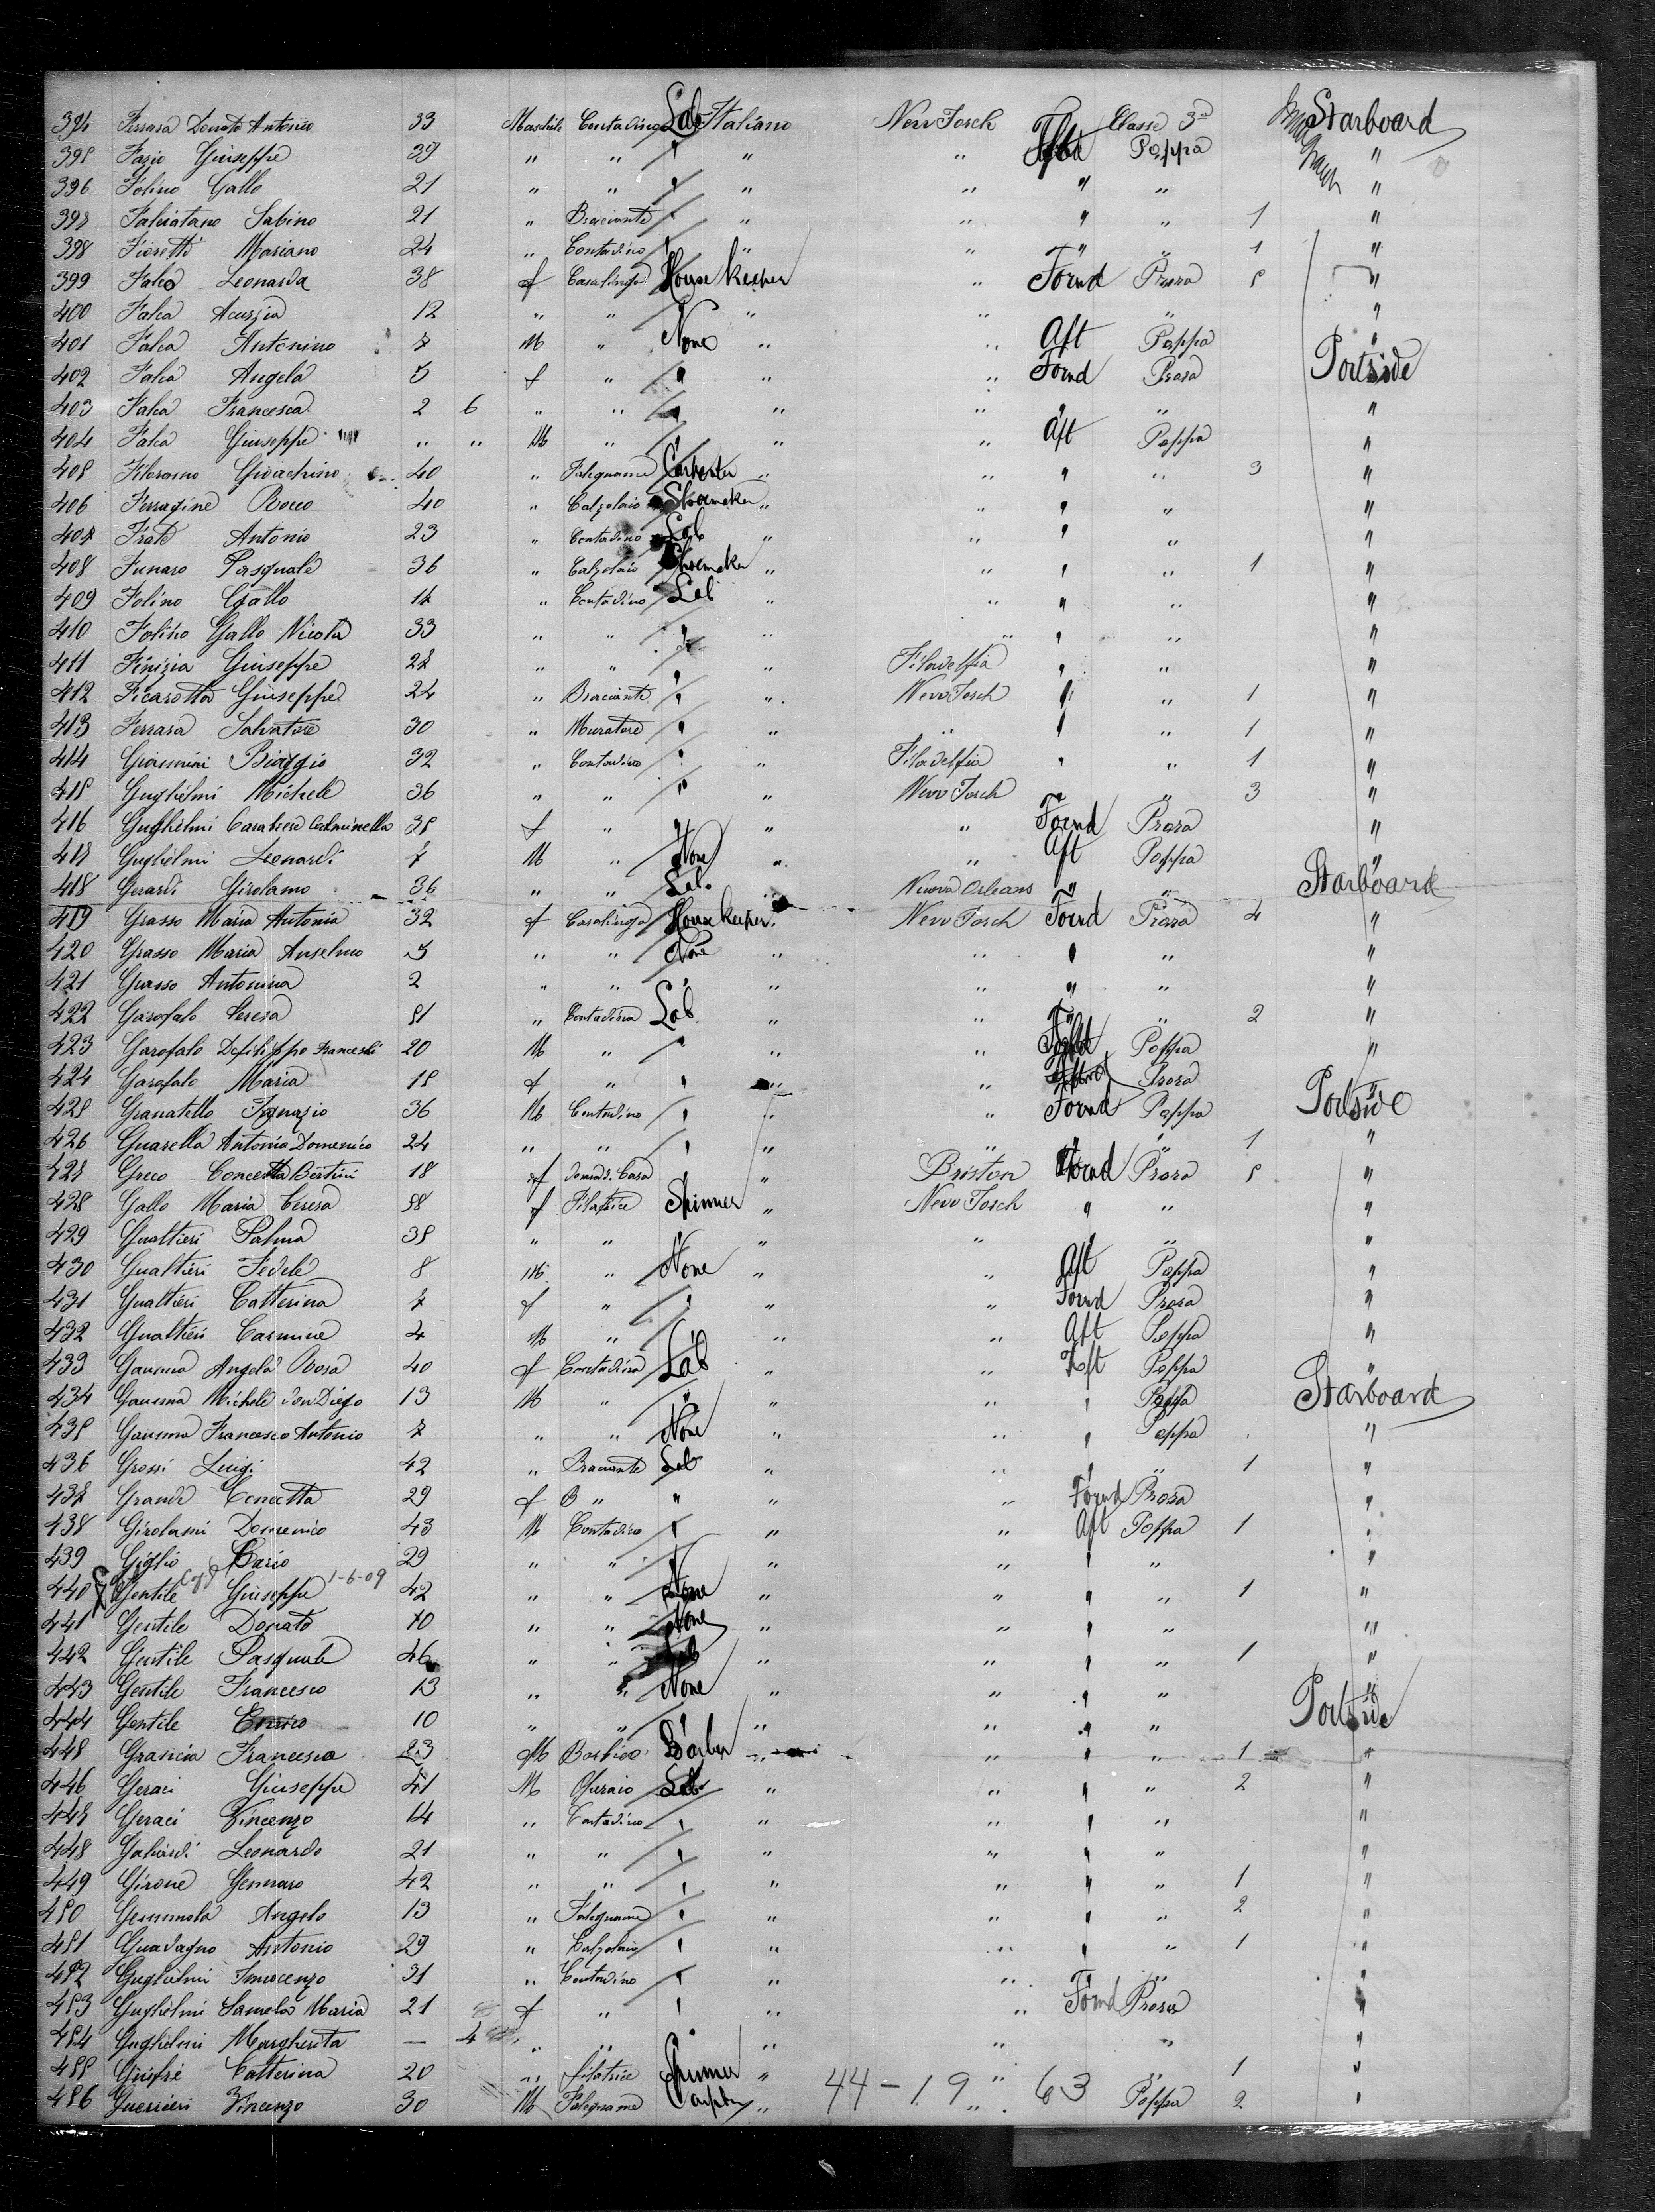 394 Ferrara Donato Antonio 33 Maschile Contadino Lab Italiano New Jorch Classe 3ª Starboard
395 Fazio Giuseppe 39 " " " " " Poppa "
396 Folino Gallo 21 " " " " " " " "
397 Falciatano Sabino 21 " Bracciante " " " " " 1 "
398 Fioretti Mariano 24 " Contadino " " " " " 1 "
399 Falca Leonarda 38 f Casalinga House Keeper " Forwd Prora 5 "
400 Falca Acurzia 12 " " " " " "
401 Falca Antonino 7 M " None " " Aft Poppa "
402 Falca Angela 5 f " " " " Forwd Prora Portside
403 Falca Francesca 2 6 " " " " " " " "
404 Falca Giuseppe " " M " " " " Aft Poppa "
405 Gioachino 40 " Falegname Carpenter " " " " 3 "
406 Ferragine Rocco 40 " Calzolaio Shoemaker " " " " "
407 Frate Antonio 23 " Contadino Lab " " " " "
408 Funaro Pasquale 36 " Calzolaio Shoemaker " " " " 1 "
409 Folino Gallo 14 " Contadino Lab " " " " "
410 Folino Gallo Nicola 33 " " " " " " " "
411 Finizia Giuseppe 27 " " " " Filadelfia " " "
412 Ficarotta Giuseppe 24 " Bracciante " " New Jorch " " 1 "
413 Ferrara Salvatore 30 " Muratore " " " " " 1 "
414 Giannini Biaggio 32 " Contadino " " Filadelfia " " 1 "
415 Guglielmi Michele 36 " " " " New Jorch " " 3 "
416 Guglielmi Carminella 35 f " " " " Forwd Prora "
417 Guglielmi Leonardi 7 M " None " " Aft Poppa "
418 Gerardi Girolamo 36 " " Lab. " Nuova Orleans " " Starboard
419 Grasso Maria Antonia 32 f Casalinga House Keeper " New Jorch Forwd Prora 4 "
420 Grasso Maria Anselmo 5 " " None " " " " "
421 Grasso Antonina 2 " " " " " " " "
422 Garofalo Teresa 51 " Contadina Lab " " " " 2 "
423 Garofalo Defilippo Franceschi 20 M " " " " Poppa "
424 Garofalo Maria 15 f " " " " Prora "
425 Granatello Ignazio 36 M Contadino " " " Forwd Poppa Portside
426 Guarella Antonio Domenico 24 " " " " " " " 1 "
427 Greco Concetta Bertini 18 f Casa " Briston Forwd Prora 5 "
428 Gallo Maria Teresa 58 f Filatrice Spinner " New Jorch " " "
429 Gualtieri Palma 35 " " " " " " " "
430 Gualtieri Fedele 8 M " None " " Aft Poppa "
431 Gualtieri Catterina 7 f " " " " Forwd Prora "
432 Gualtieri Carmine 4 M " " " " Aft Poppa "
433 Angela Rosa 40 f Contadina Lab " " Aft Poppa "
434 Michele 13 M " " " " " Poppa Starboard
435 Francesco Antonio 7 " " None " " " Poppa "
436 Grossi Luigi 42 " Bracciante Lab " " " " 1 "
437 Grande Concetta 29 f B " " " " Forwd Prora "
438 Girolami Domenico 43 M Contadino " " " Aft Poppa 1 "
439 Giglio Mario 29 " " " " " " " "
440 Gentile Giuseppe 1-6-09 42 " " None " " " " 1 "
441 Gentile Donato 10 " " None " " " " "
442 Gentile Pasquale 46 " " Lab " " " " 1 "
443 Gentile Francesco 13 " " None " " " " "
444 Gentile 10 " " " " " " Portside
445 Francesco 23 M Barbiere Barber " " " " 1 "
446 Geraci Giuseppe 41 M Operaio Lab " " " " 2 "
447 Geraci Vincenzo 14 " Contadino " " " " " "
448 Galiardi Leonardo 21 " " " " " " " "
449 Girone Gennaro 42 " " " " " " " 1 "
450 Angelo 13 " Falegname " " " " " 2 "
451 Guadagno Antonio 29 " Calzolaio " " " " " 1 "
452 Guglielmi Innocenzo 31 " Contadino " " " " " "
453 Guglielmi Samela Maria 21 f " " " " Forwd Prora "
454 Guglielmi Margherita — 4 " " " " " "
455 Giufrè Catterina 20 " filatrice Spinner " " " 1 "
456 Guerrieri Vincenzo 30 M Falegname " 44 - 19 " 63 Poppa 2 "